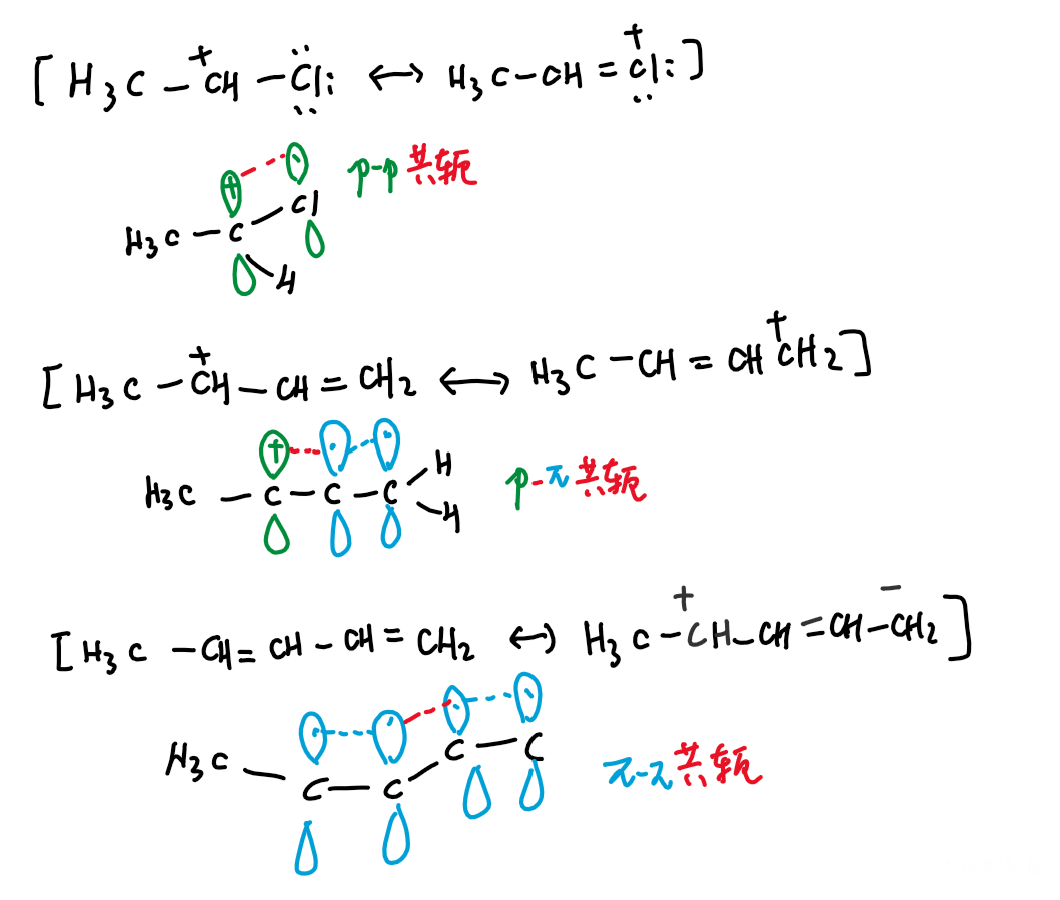 [H₃C – C⁺H – Cl: ↔ H₃C – CH = C⁺l:]
p-p共轭
H₃C – C – Cl
H
[H₃C – C⁺H – CH = CH₂ ↔ H₃C – CH = CH C⁺H₂]
H₃C – C – C – C
H
H
p-π共轭
[H₃C – CH = CH – CH = CH₂ ↔ H₃C – C⁺H – CH = CH – C⁻H₂]
H₃C – C – C – C – C
π-π共轭